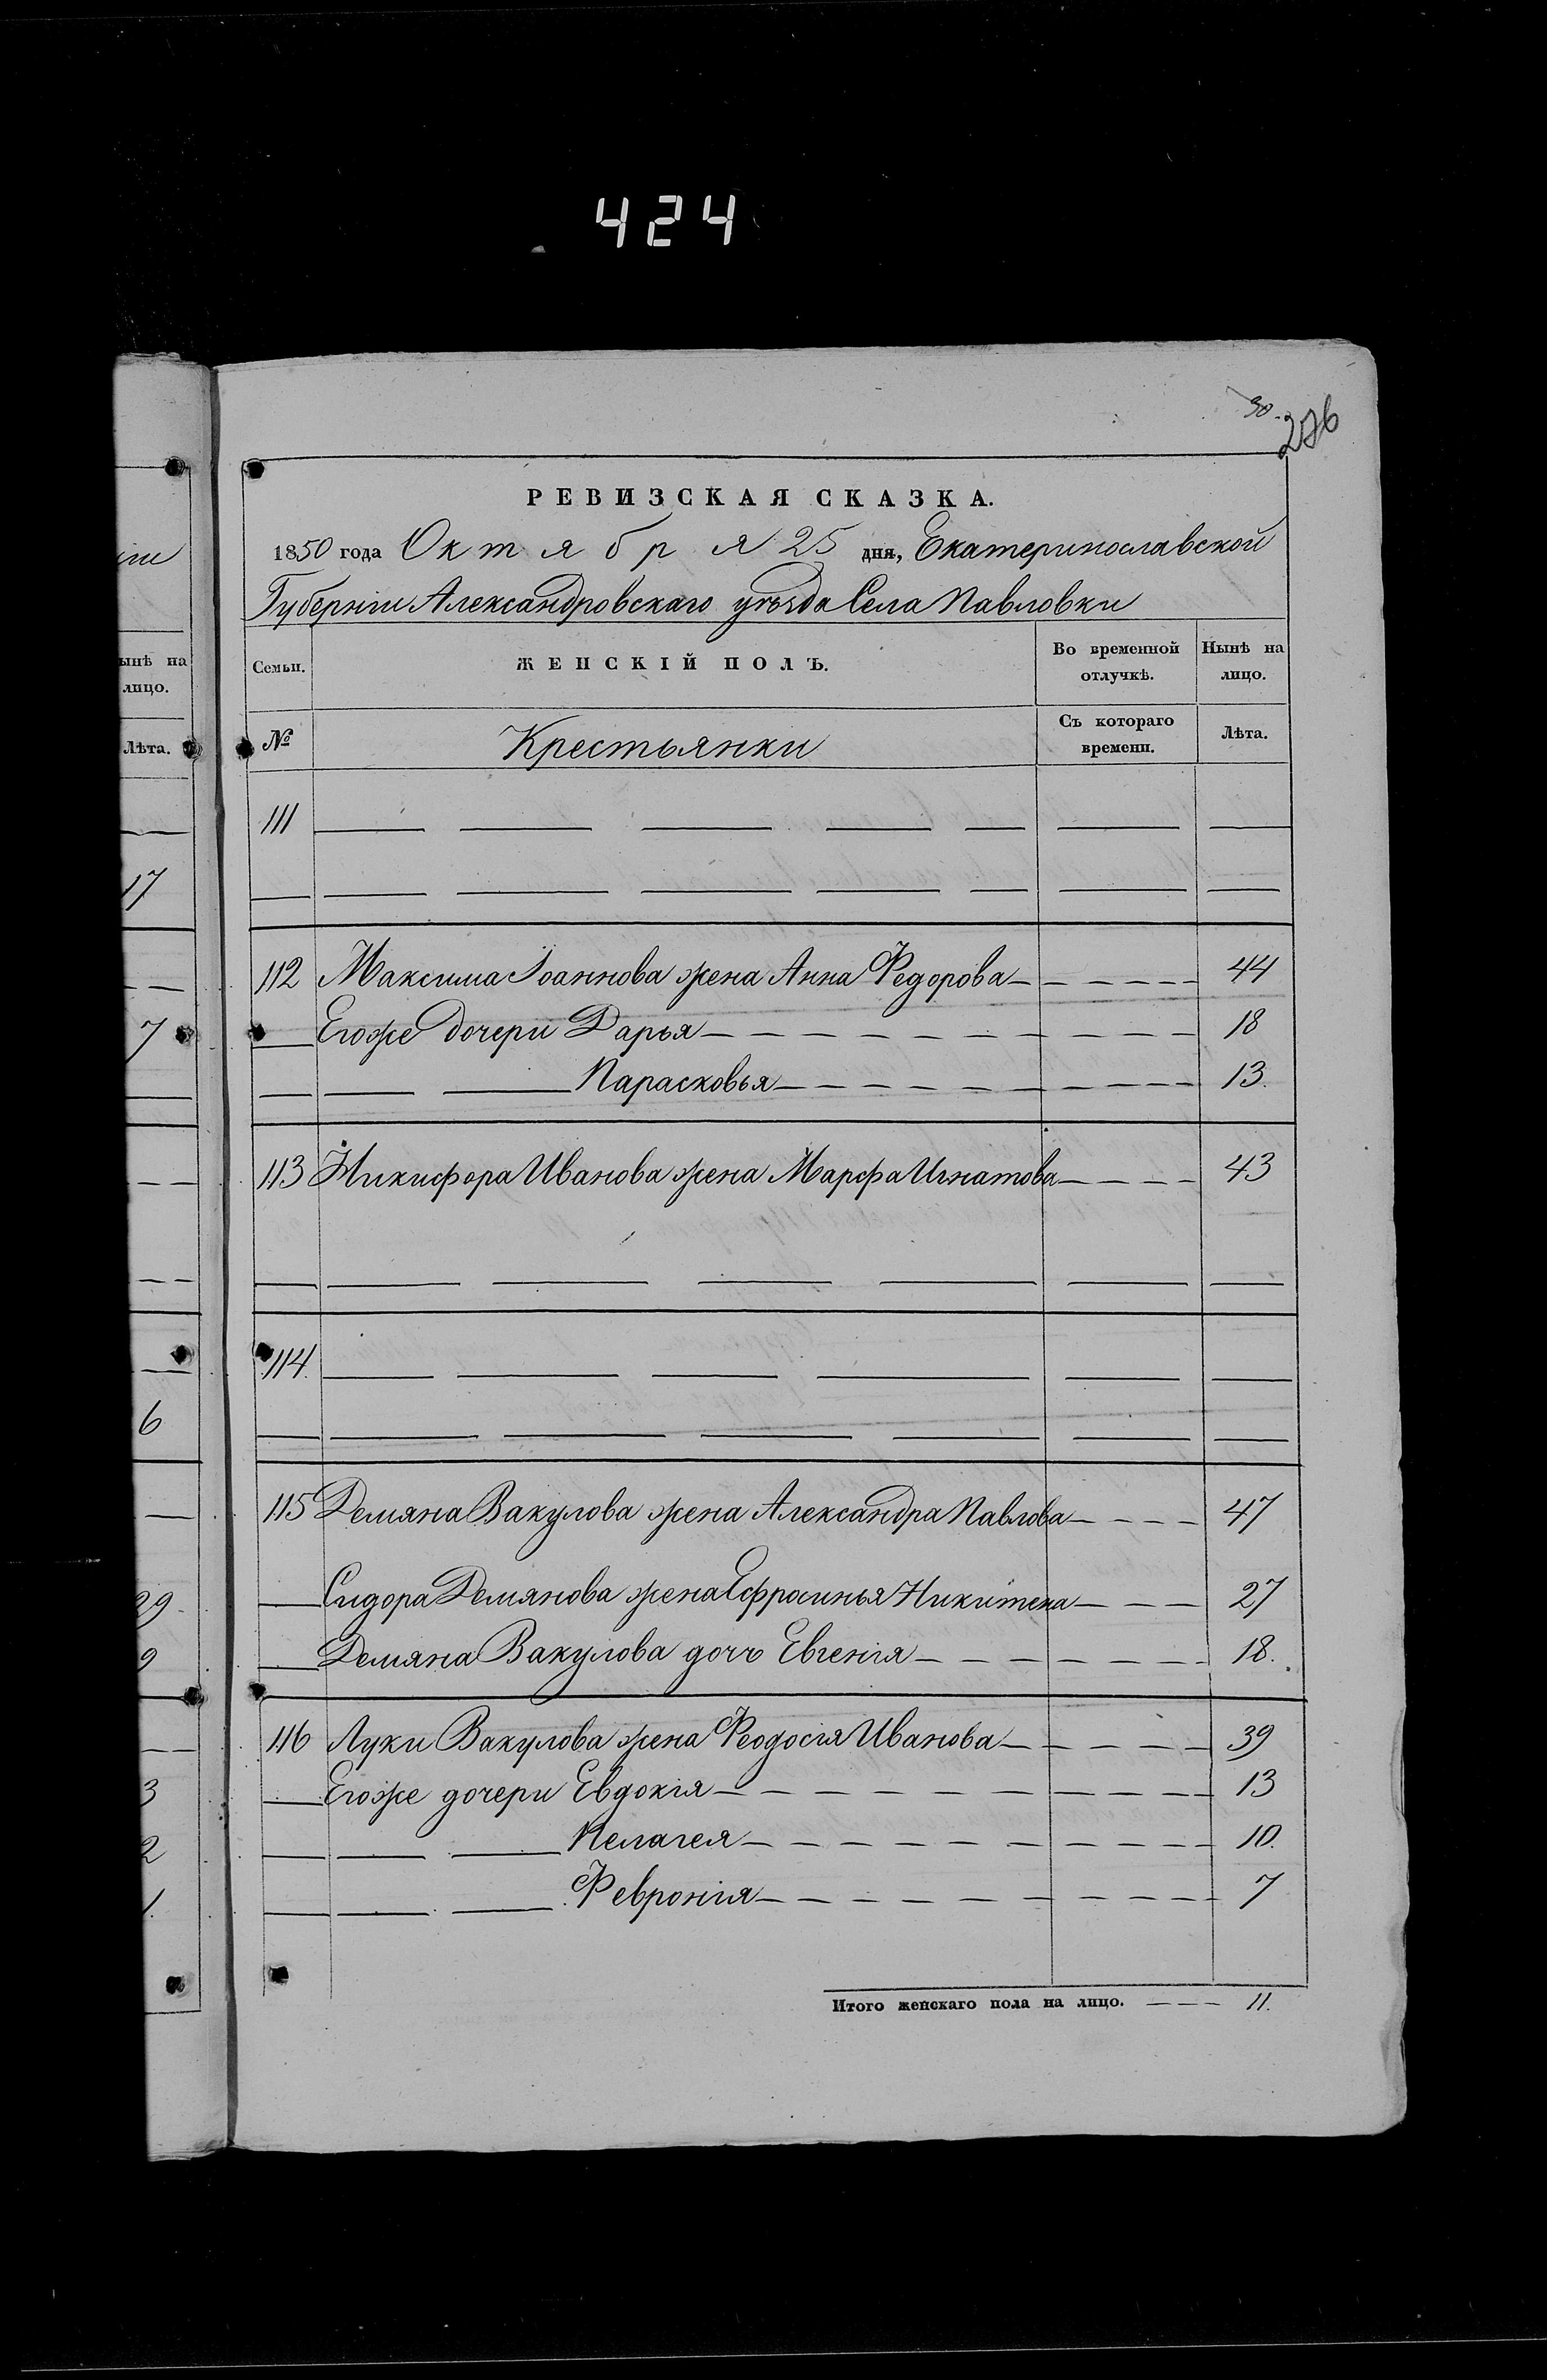 424
30.
276
РЕВИЗСКАЯ СКАЗКА.
1850 года Октября 25 дня, Екатеринославской
Губерніи Александровскаго уѣзда Села Павловки
Семьи. ЖЕНСКІЙ ПОЛЪ. Во временной отлучкѣ. Нынѣ на лицо.
№ Крестьянки Съ котораго времени. Лѣта.
111
112 Максима Іоаннова жена Анна Федорова 44
Егоже дочери Дарья 18
Парасковья 13.
113 Никифора Иванова жена Марфа Игнатова 43
114.
115 Демяна Вакулова жена Александра Павлова 47
Сидора Демянова жена Ефросинья Никитена 27
Демяна Вакулова дочь Евгенія 18.
116 Луки Вакулова жена Феодосія Иванова 39
Егоже дочери Евдокія 13
Пелагея 10.
Февронія 7
Итого женскаго пола на лицо. 11.
ынѣ на
лицо.
Лѣта.
17
7
6
29.
9
3
2
1.